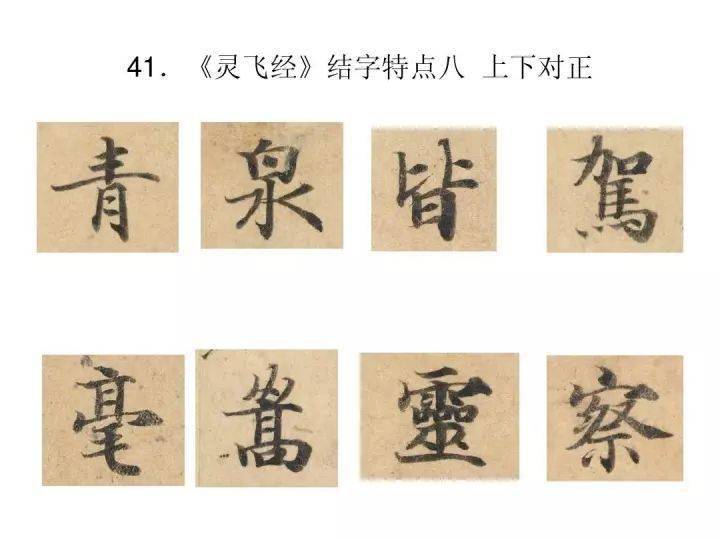 41．《灵飞经》结字特点八 上下对正
青 泉 皆 駕
毫 嵩 靈 察